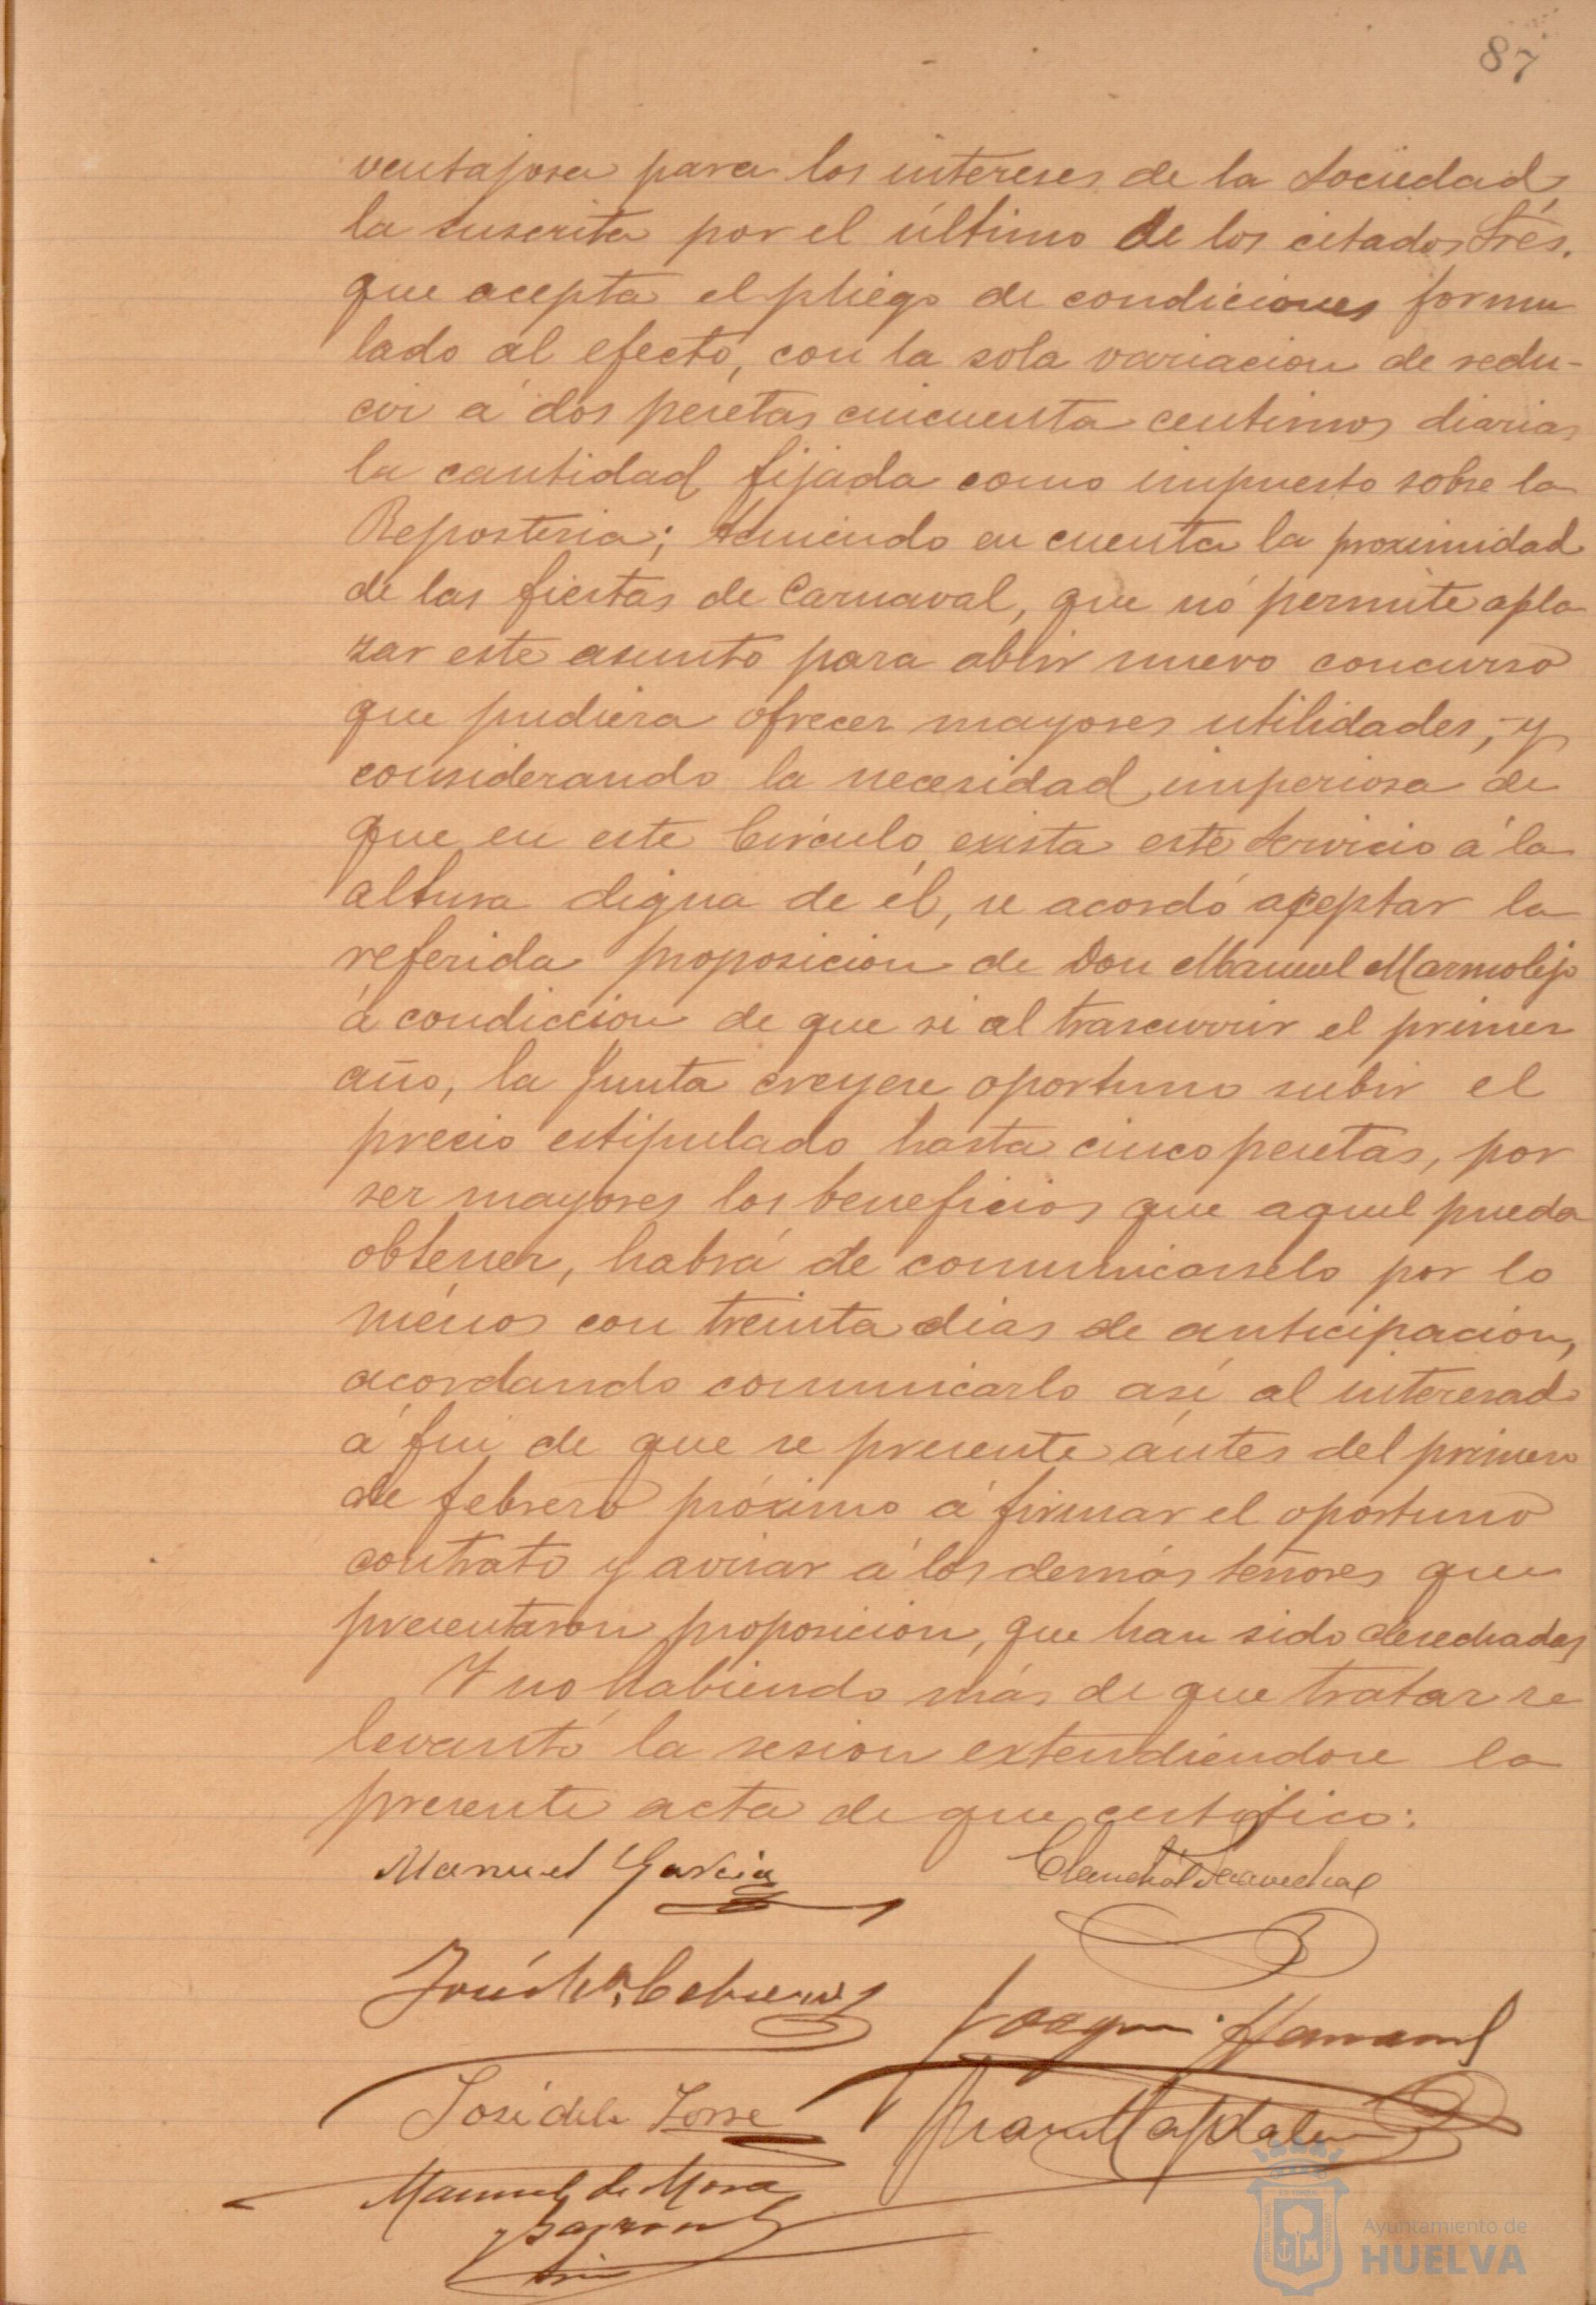 87
ventajosa para los intereses de la Sociedad,
la suscrita por el último de los citados Srés.
que acepta el pliego de condiciones formu
lado al efecto, con la sola variacion de redu-
cir á dos pesetas cincuenta centimos diarias
la cantidad fijada como impuesto sobre la
Reposteria; teniendo en cuenta la proximidad
de las fiestas de Carnaval, que nó permite apla
zar este asunto para abrir nuevo concurso
que pudiera ofrecer mayores utilidades, y
considerando la necesidad imperiosa de
que en este Círculo exista este servicio á la
altura digna de él, se acordó aceptar la
referida proposicion de Don Manuel Marmolejo
á condiccion de que si al trascurrir el primer
año, la Junta creyese oportuno subir el
precio estipulado hasta cinco pesetas, por
ser mayores los beneficios que aquel pueda
obtener, habrá de comunicarselo por lo
ménos con treinta dias de anticipación,
acordando comunicarlo así al interesado
á fin de que se presente ántes del primero
de febrero próximo á firmar el oportuno
contrato y avisar á los demás señores que
presentaron proposicion, que han sido desechadas
Y no habiendo más de que tratar se
levantó la sesion extendiéndose la
presente acta de que certifico:
Manuel Garcia
José de la Torre
Joaquin
Juan
Manuel de Mora
Ayuntamiento de
HUELVA